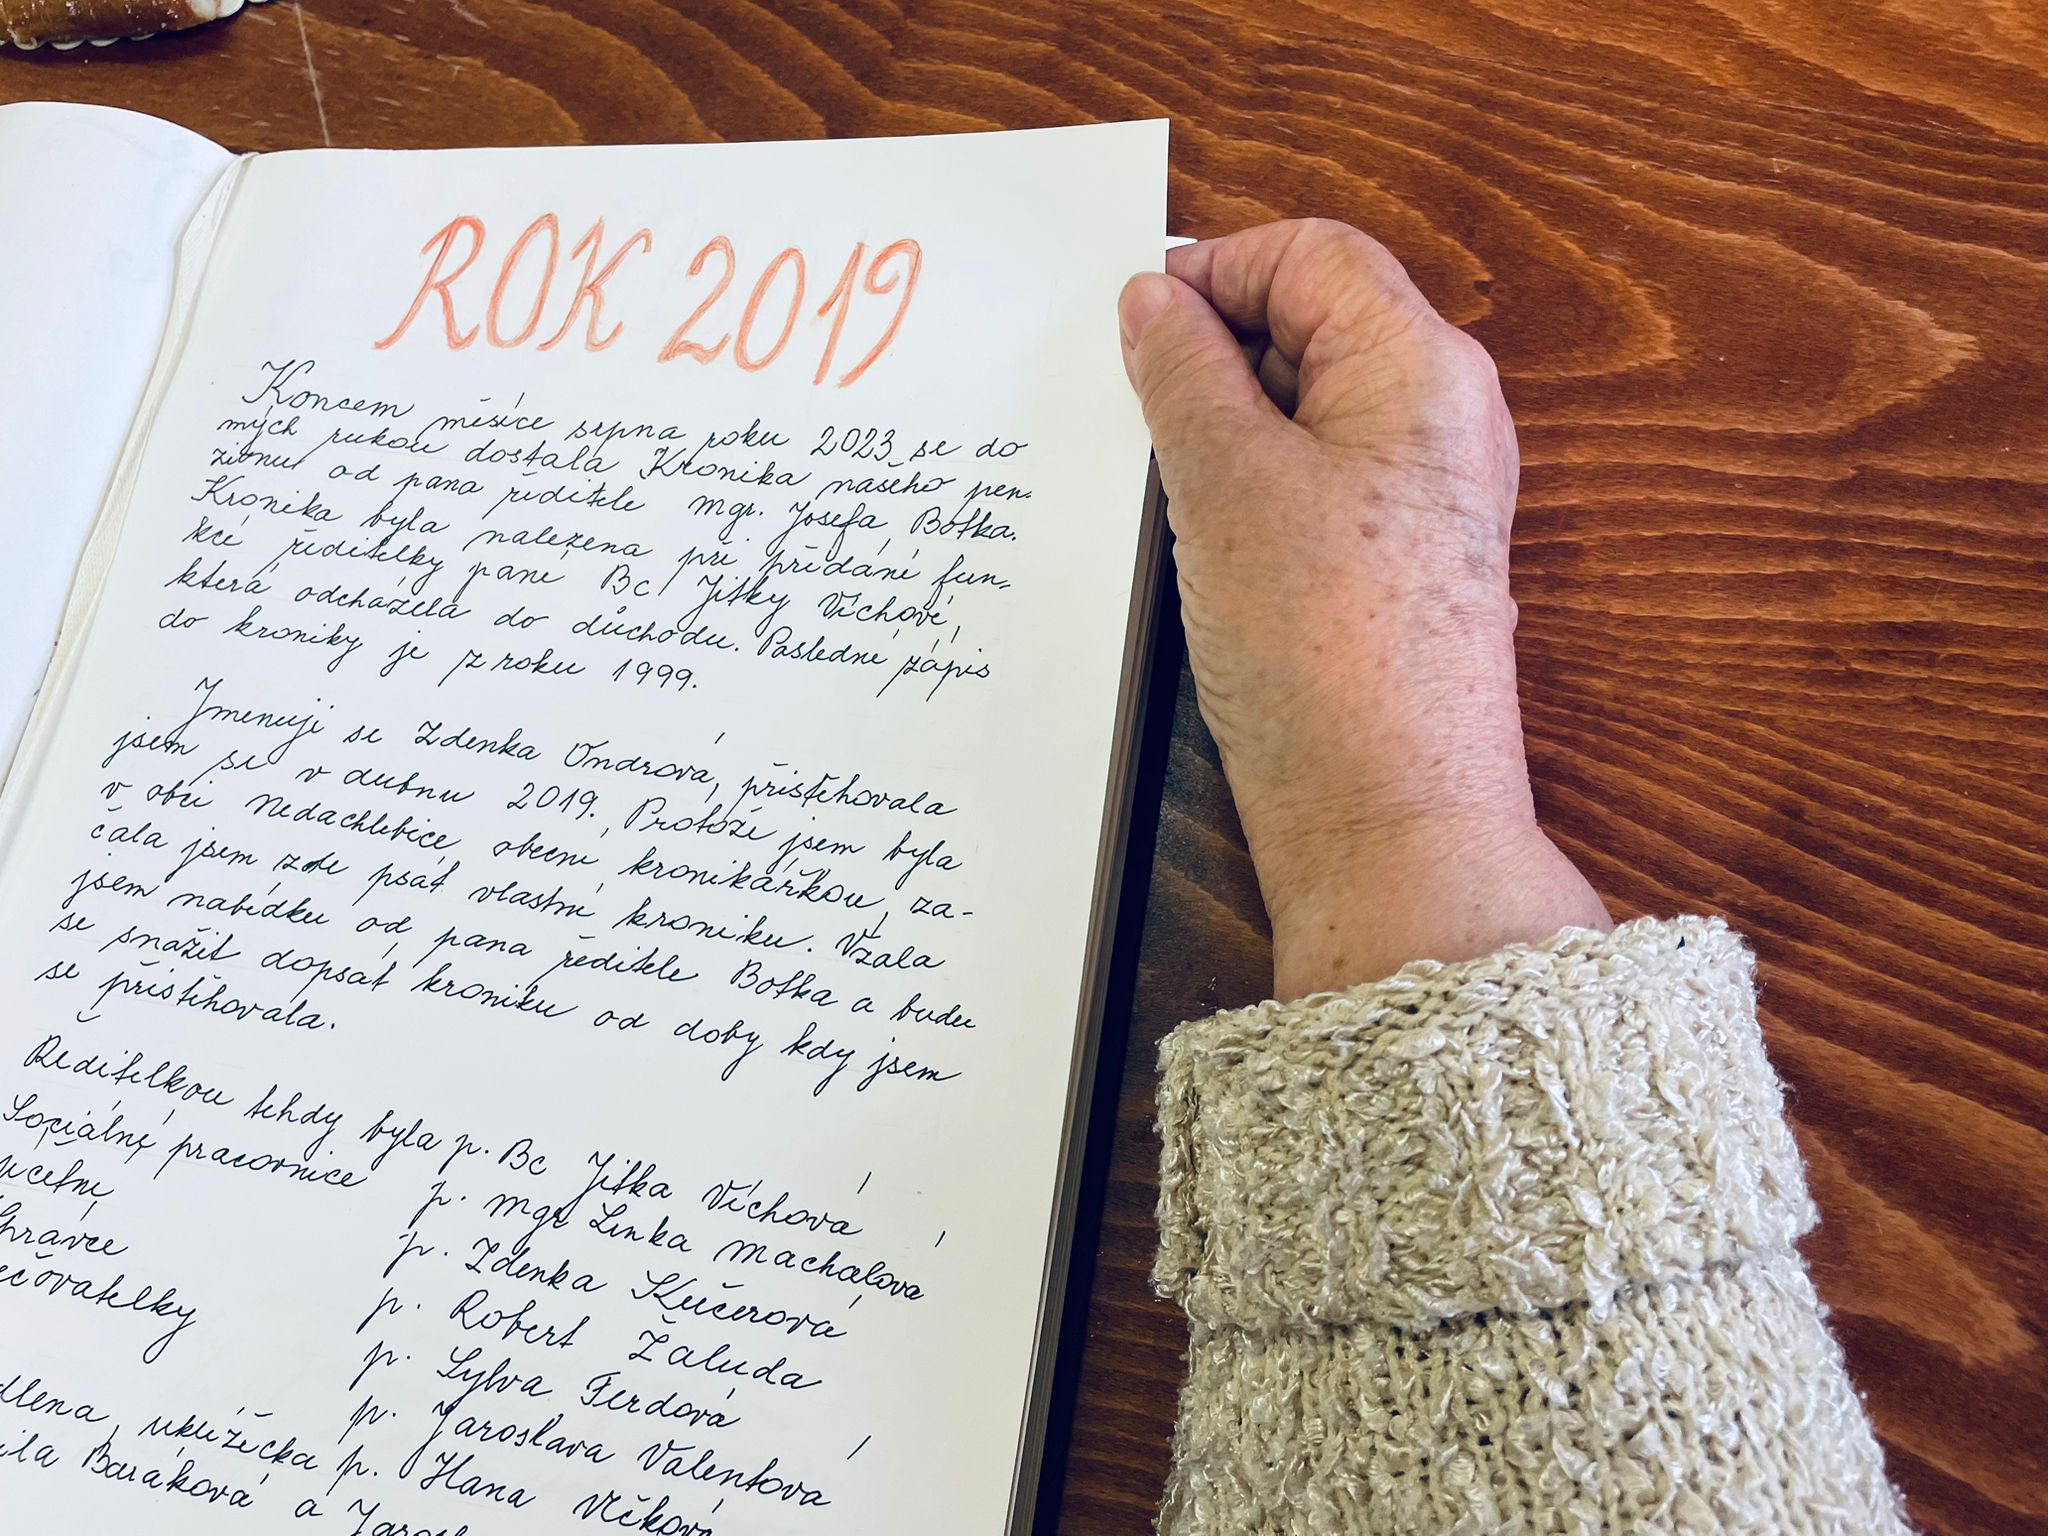 ROK 2019
Koncem měsíce srpna roku 2023 se do
mých rukou dostala Kronika našeho pen-
zionu od pana ředitele Mgr. Josefa Botka.
Kronika byla nalezena při předání fun-
kcí ředitelky paní Bc Jitky Víchové,
která odcházela do důchodu. Poslední zápis
do kroniky je z roku 1999.
Jmenuji se Zdenka Ondrová, přistěhovala
jsem se v dubnu 2019. Protože jsem byla
v obci Nedachlebice obecní kronikářkou, za-
čala jsem zde psát vlastní kroniku. Vzala
jsem nabídku od pana ředitele Botka a budu
se snažit dopsat kroniku od doby kdy jsem
se přistěhovala.
Ředitelkou tehdy byla p. Bc Jitka Víchová
Sociální pracovnice p. Mgr Lenka Machalová
účetní p. Zdenka Kučerová
Správce p. Robert Žaluda
ečovatelky p. Sylva Ferdová
p. Jaroslava Valentová
dlena, uklízečka p. Hana Vlčková
ila Baráková a Jarosl